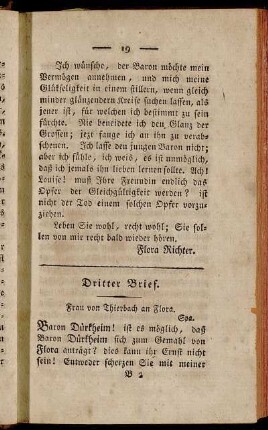 — 19 —
Ich wünsche, der Baron möchte mein
Vermögen annehmen, und mich meine
Glükseligkeit in einem stillern, wenn gleich
minder glänzendern Kreise suchen lassen, als
jener ist, für welchen ich bestimmt zu sein
fürchte. Nie beneidete ich den Glanz der
Grossen; jezt fange ich an ihn zu verab-
scheuen. Ich hasse den jungen Baron nicht;
aber ich fühle, ich weis, es ist unmöglich,
daß ich jemals ihn lieben lernen sollte. Ach!
Louise! muß Ihre Freundin endlich das
Opfer der Gleichgültigkeit werden? ist
nicht der Tod einem solchen Opfer vorzu-
ziehen.
Leben Sie wohl, recht wohl; Sie sol-
len von mir recht bald wieder hören.
Flora Richter.
Dritter Brief.
Frau von Thierbach an Flora.
Spa.
Baron Dürkheim! ist es möglich, daß
Baron Dürkheim sich zum Gemahl von
Flora anträgt? dies kann ihr Ernst nicht
sein! Entweder scherzen Sie mit meiner
B 2